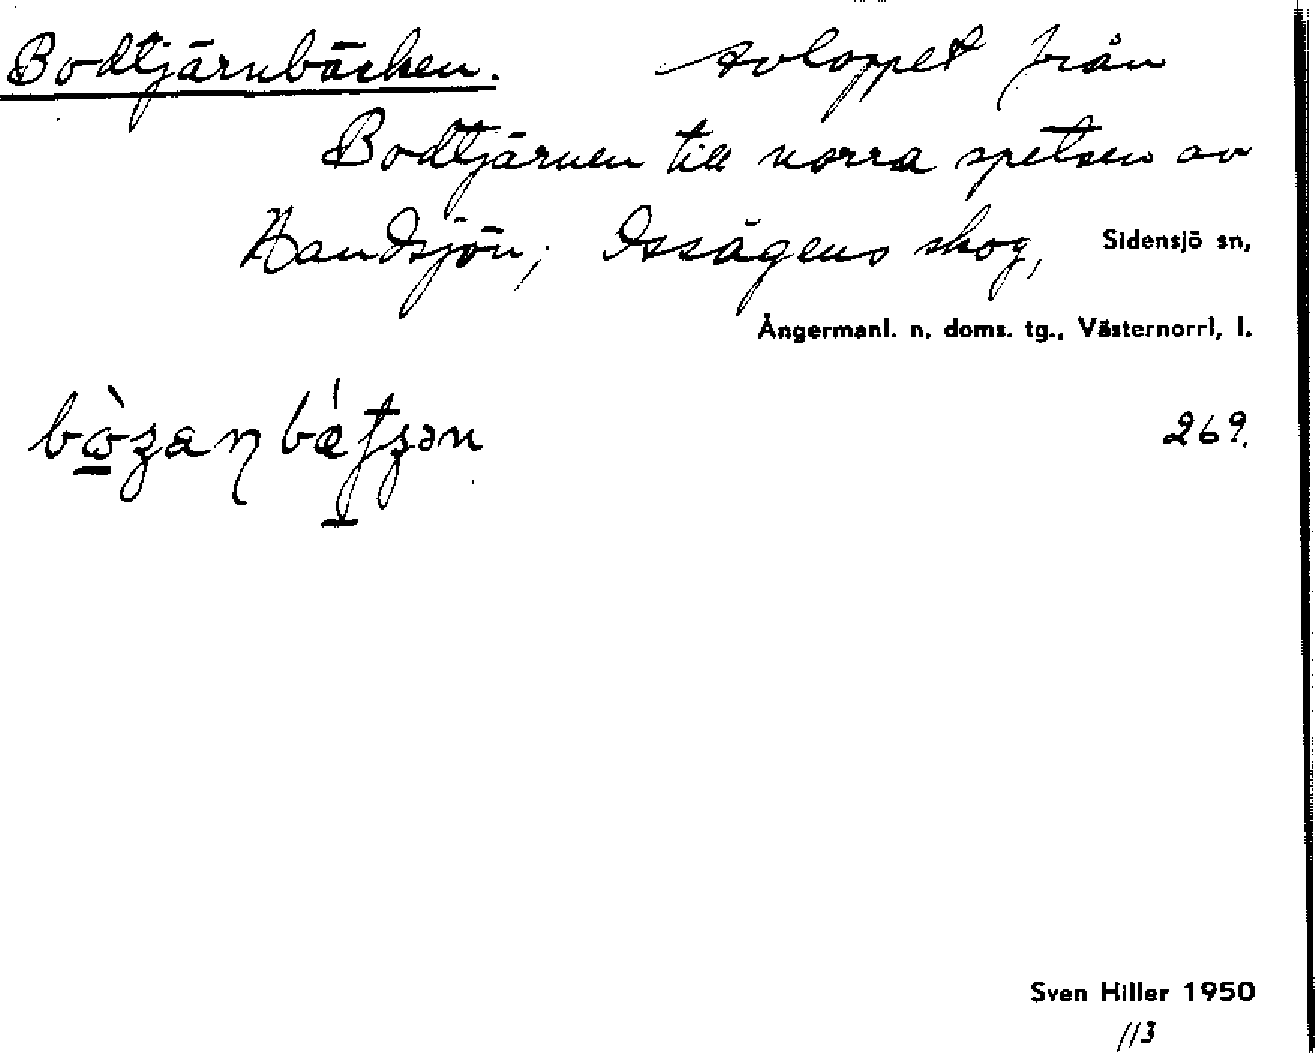 Bodtjärnbäcken. Avloppet från
Bodtjärnen till norra spetsen av
Handsjön; Issågens skog, Sidensjö sn,
Ångermanl. n. doms. tg., Västernorrl, l.
269.
Sven Hiller 1950
113